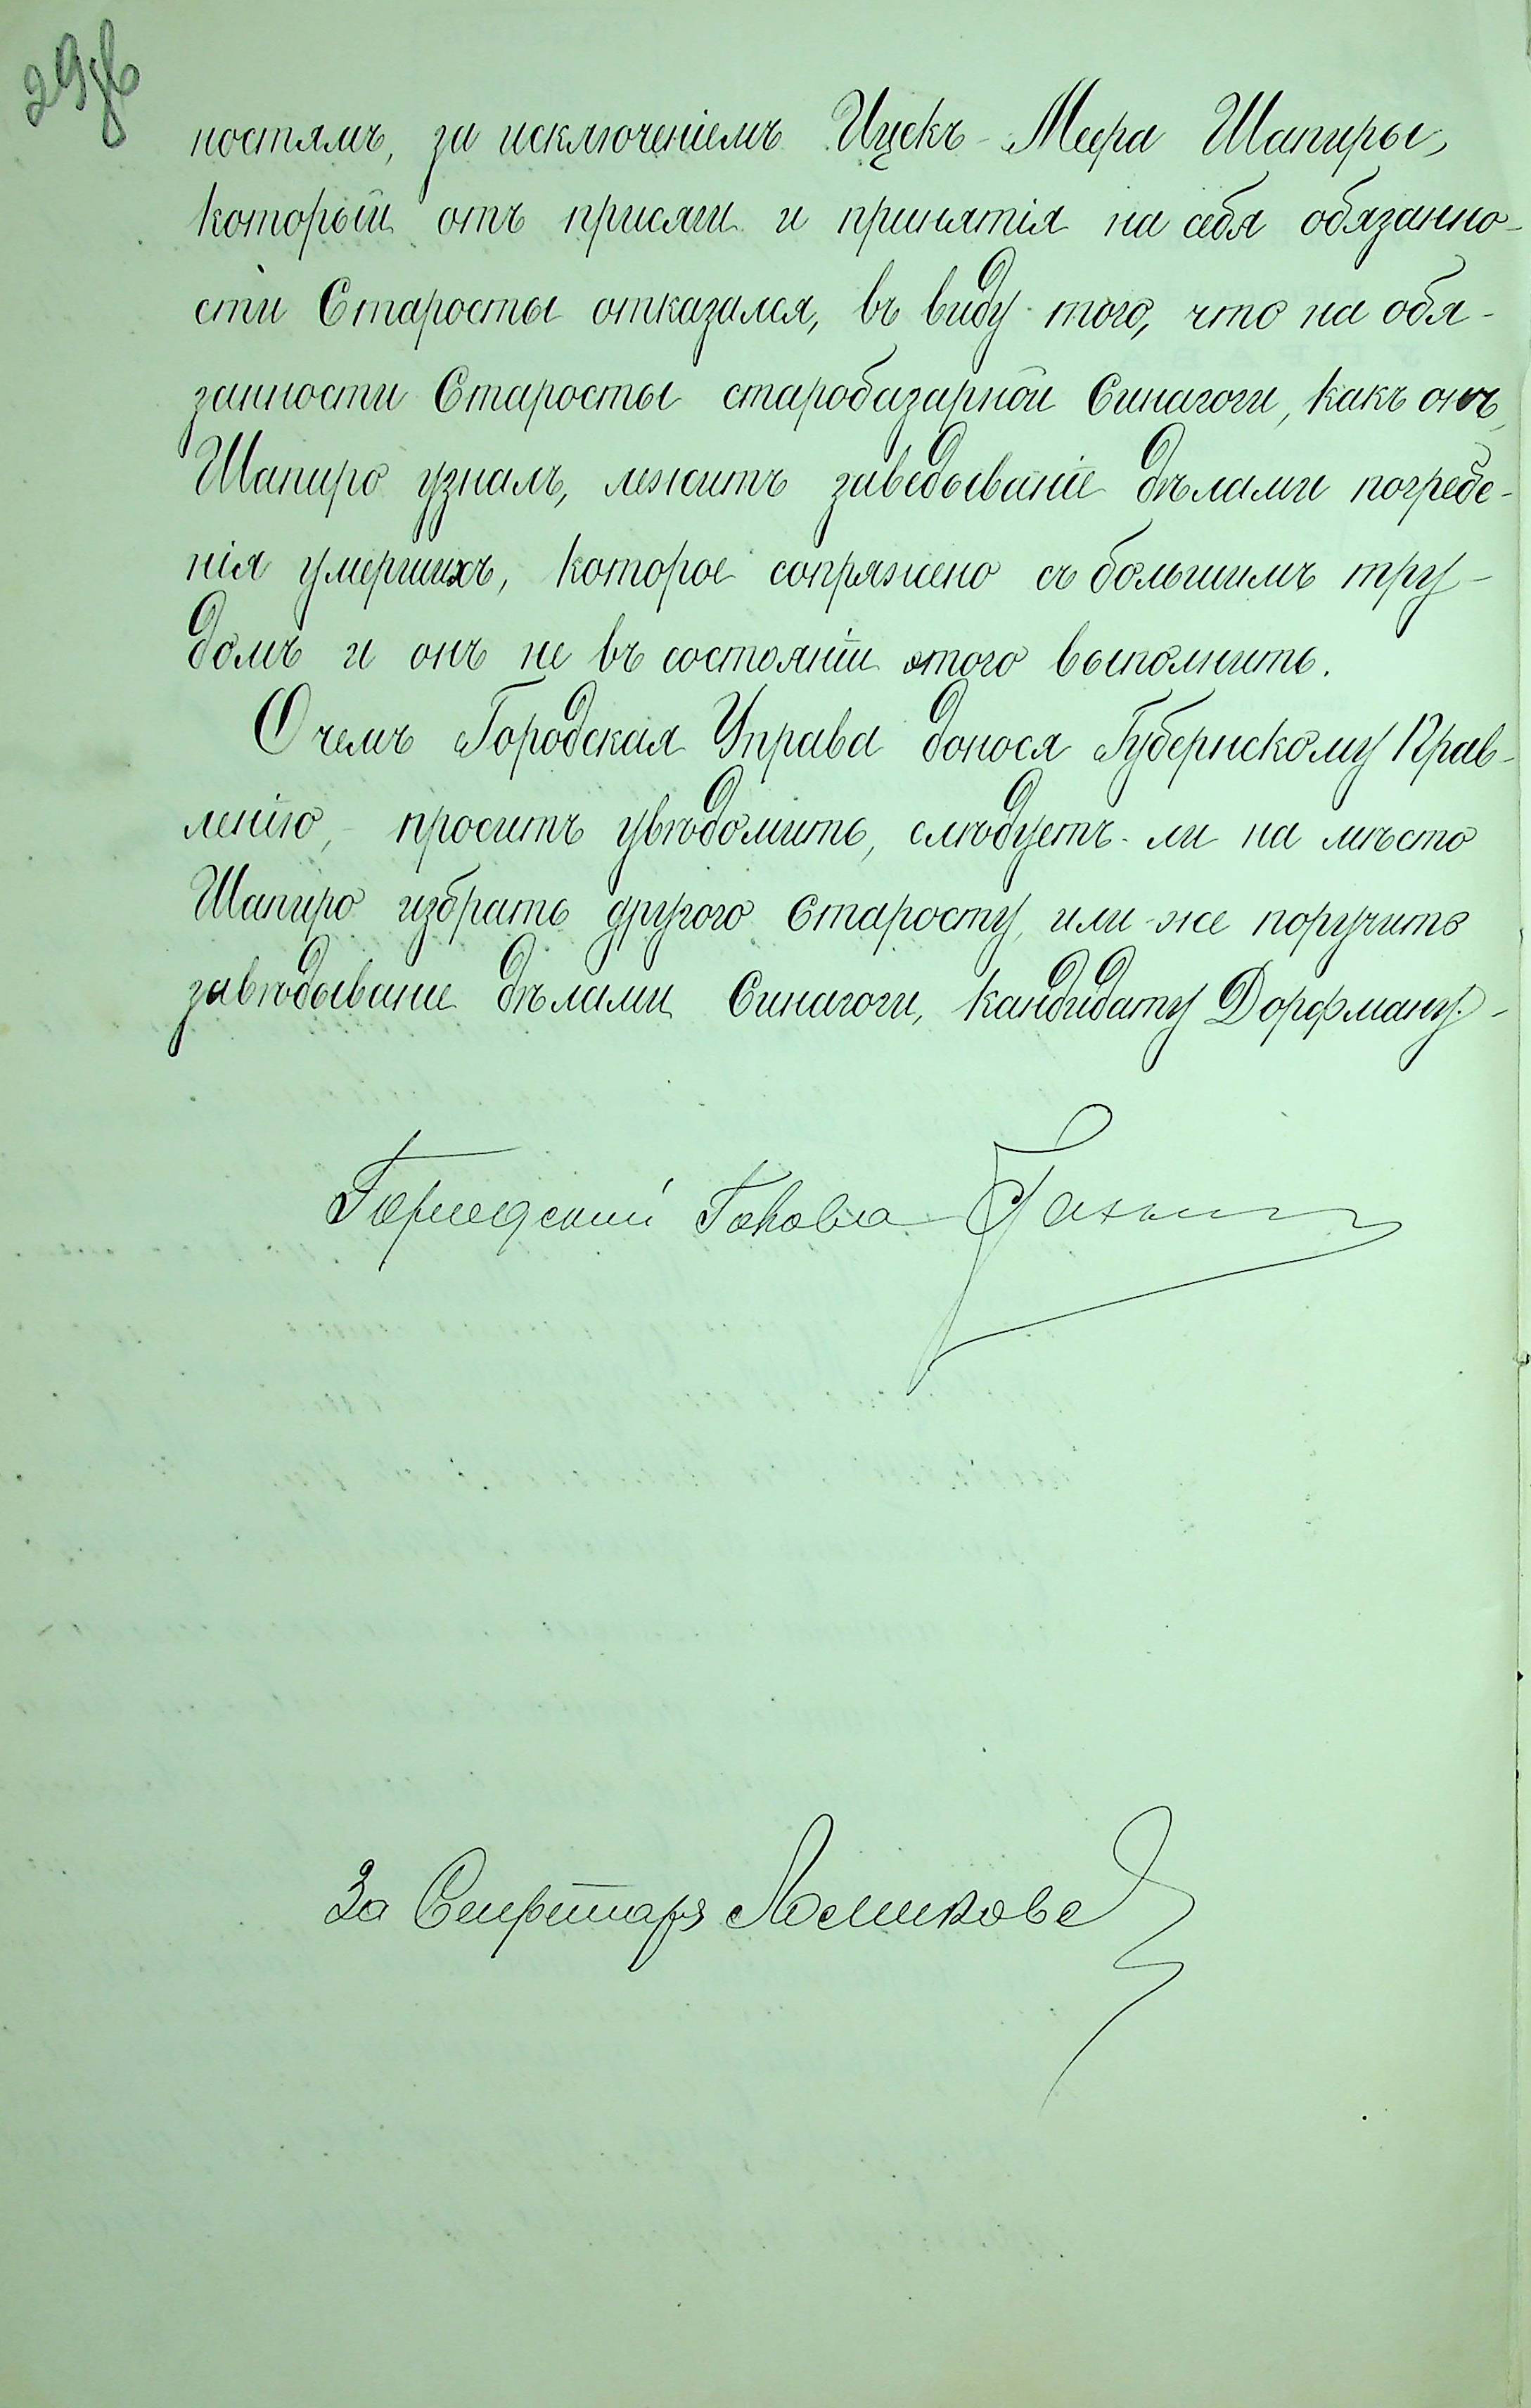 29об
ностямъ, за исключеніемъ Ицекъ-Меера Шапиры,
который отъ присяги и принятія на себя обязанно-
сти Старосты отказался, въ виду того, что на обя-
занности Старосты старобазарной Синагоги, какъ онъ,
Шапиро узналъ, лежитъ заведываніе дѣлами погребе-
нія умершихъ, которое сопряжено съ большимъ тру-
домъ и онъ не въ состояніи этого выполнить.
О чемъ Городская Управа донося Губернскому Прав-
ленію, проситъ увѣдомить, слѣдуетъ-ли на мѣсто
Шапиро избрать другого Старосту, или-же поручить
завѣдываніе дѣлами Синагоги, кандидату Дорфману.-
Городской Голова
За Секретаря